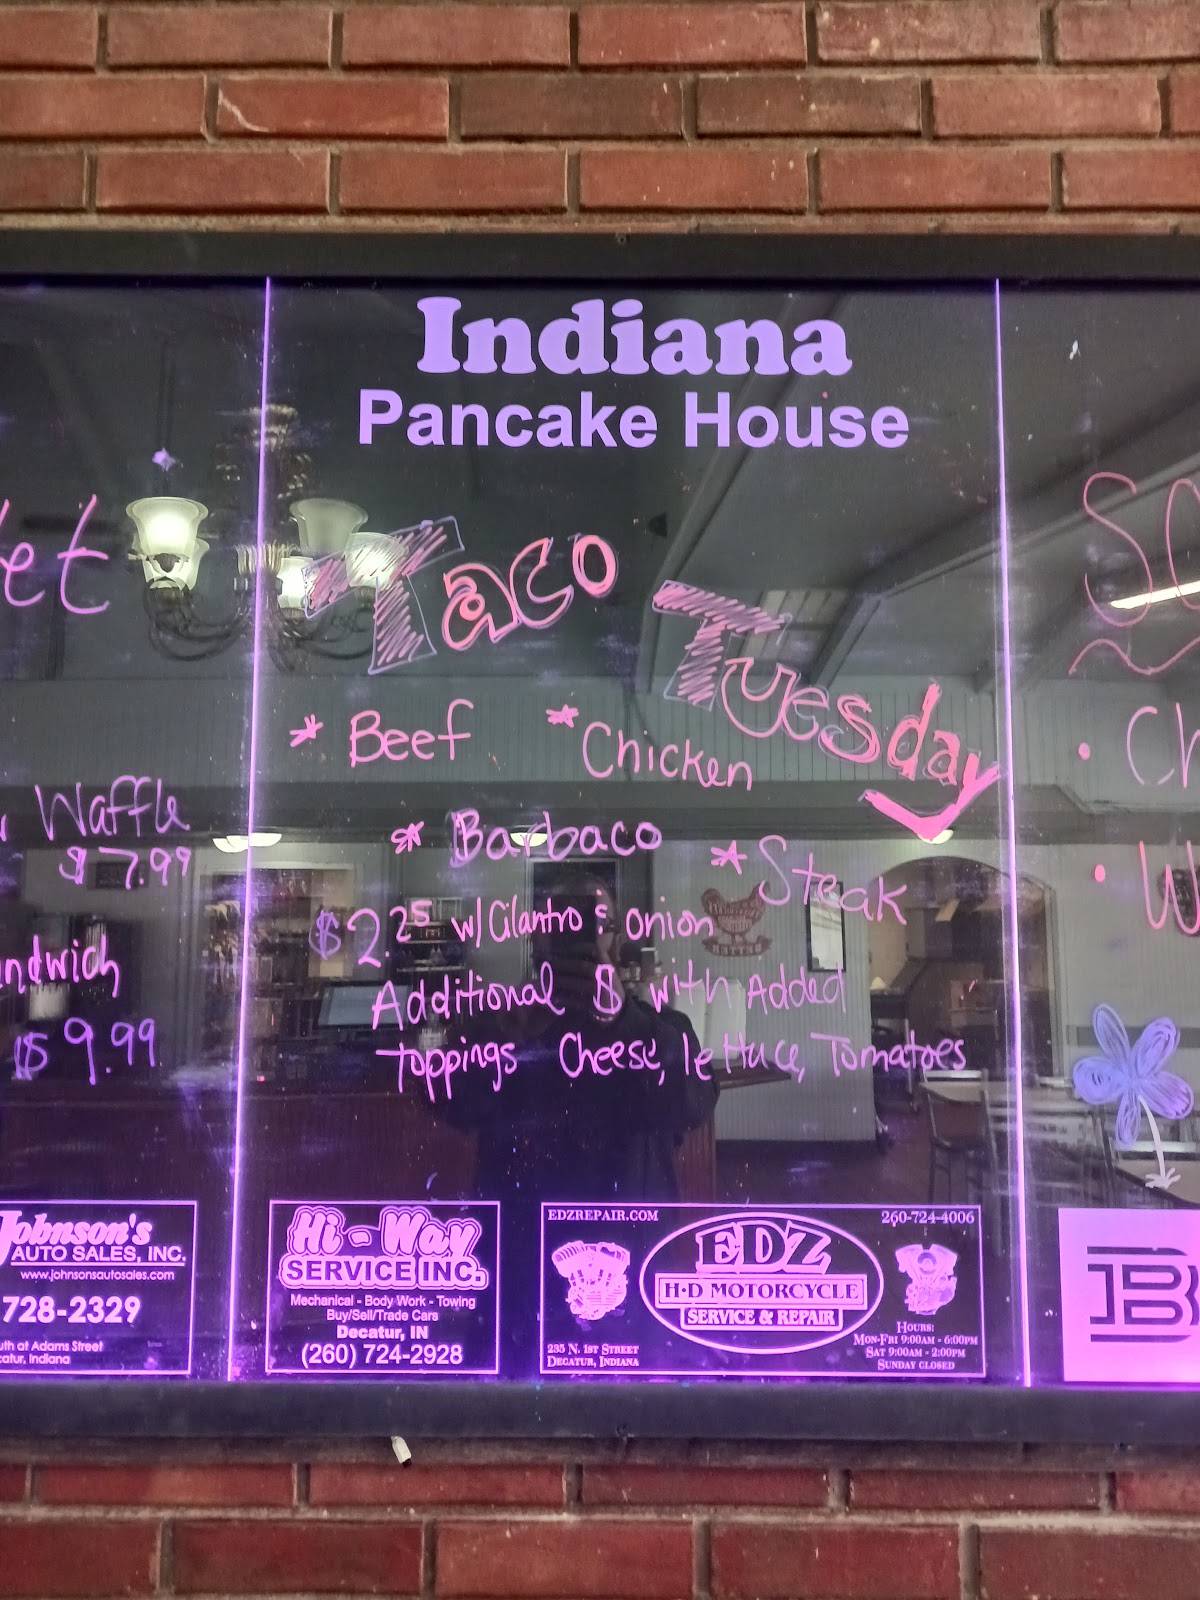 Indiana
Pancake House
Taco Tuesday
* Beef * Chicken
* Barbaco * Steak
$2.25 w/ Cilantro & onion
Additional $ with Added
toppings Cheese, lettuce, Tomatoes
et
Waffle
$7.99
ndwich
$9.99
SO
• Ch
• W
Johnson's
AUTO SALES, INC.
www.johnsonsautosales.com
728-2329
uth at Adams Street
catur, Indiana
Hi-Way
SERVICE INC.
Mechanical - Body Work - Towing
Buy/Sell/Trade Cars
Decatur, IN
(260) 724-2928
EDZREPAIR.COM 260-724-4006
EDZ
H-D MOTORCYCLE
SERVICE & REPAIR
235 N. 1ST STREET
DECATUR, INDIANA
HOURS:
MON-FRI 9:00AM - 6:00PM
SAT 9:00AM - 2:00PM
SUNDAY CLOSED
B